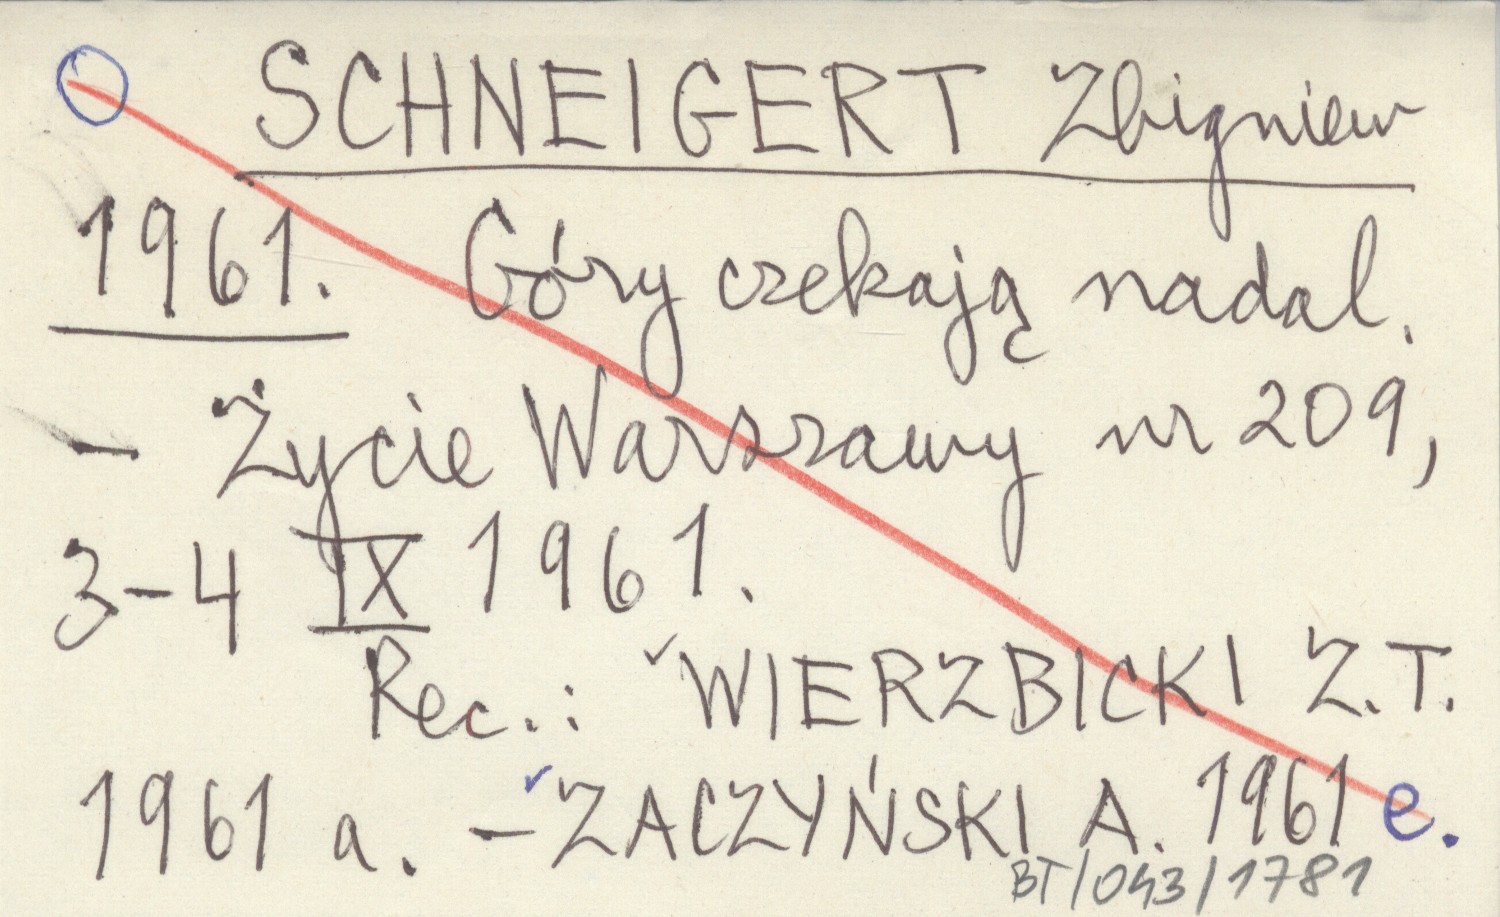 SCHNEIGERT Zbigniew
1961. Góry czekają nadal.
– Życie Warszawy nr 209,
3–4 IX 1961.
Rec.: WIERZBICKI Z.T.
1961 a. – ZACZYŃSKI A. 1961 e.
BT/043/1781